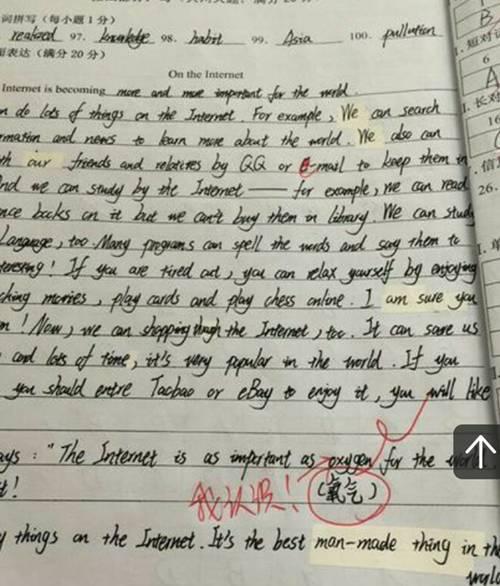 词拼写（每小题1分）
realized 97. knowledge 98. habit 99. Asia 100. pullution
面表达（满分20分）
On the Internet
Internet is becoming more and more important for the world.
n do lots of things on the Internet. For example, We can search
rmation and news to learn more about the world. We also can
th our friends and relatives by QQ or e-mail to keep them in
And we can study by the Internet — for example, we can read
nce books on it but we can't buy them in library. We can study
Language, too. Many programs can spell the words and say them to
teresting! If you are tired out, you can relax yourself by enjoying
ching movies, play cards and play chess online. I am sure you
n! Now, we can shopping though the Internet, too. It can save us
and lots of time, it's very popular in the world. If you
you should entre Taobao or eBay to enjoy it, you will like
ays: "The Internet is as important as oxygen for the world
t!
我认识！ (氧气)
y things on the Internet. It's the best man-made thing in the
world
I. 短对话
6
I. 长对
16
I. 信
26.
I. 单